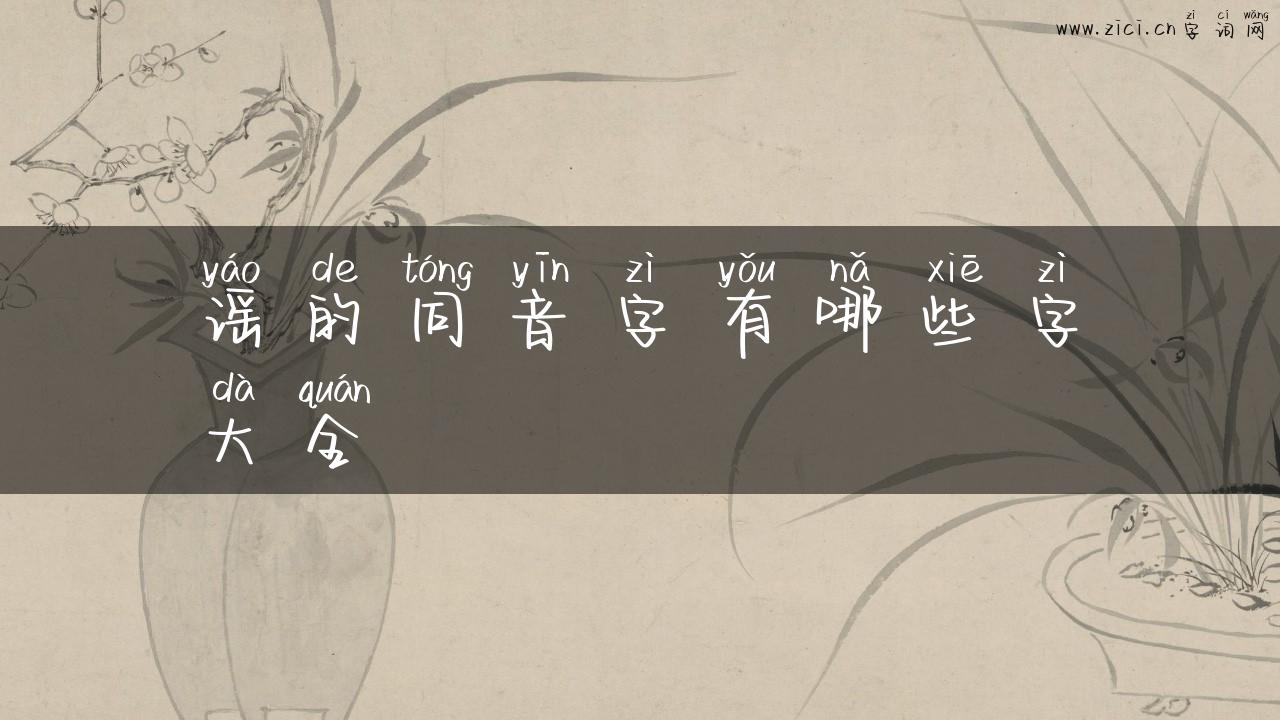 zì cí wǎng
www.zici.cn 字词网
yáo de tóng yīn zì yǒu nǎ xiē zì
谣的同音字有哪些字
dà quán
大全